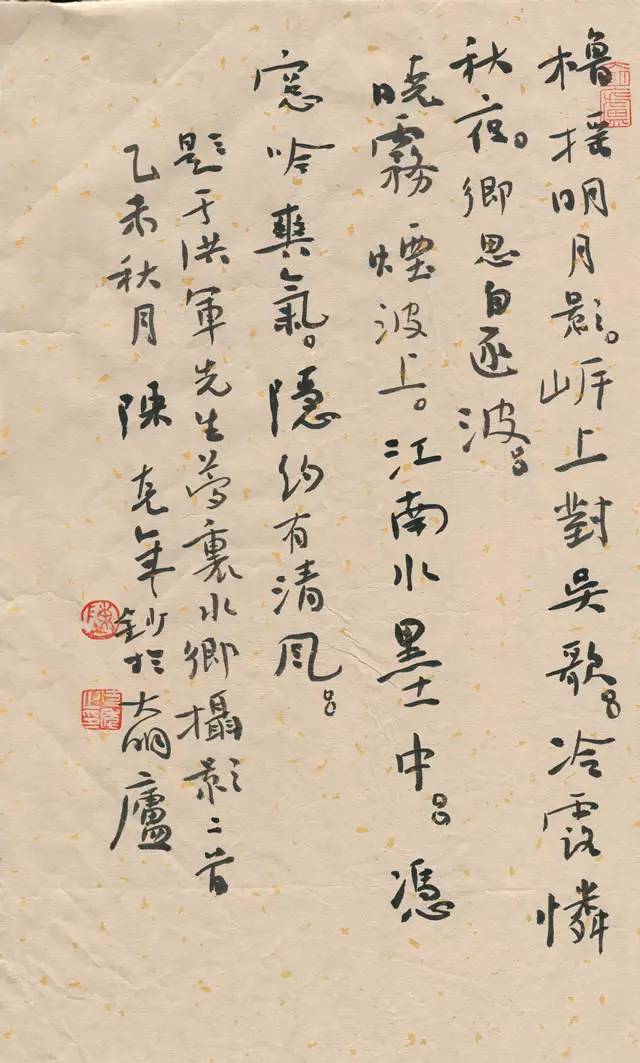 櫓搖明月影。岸上對吳歌。冷露憐
秋夜。鄉思自逐波。
曉霧煙波上。江南水墨中。憑
窗吟爽氣。隱約有清風。
題于洪軍先生夢裏水鄉攝影二首
乙未秋月 陳克年鈔於大明廬